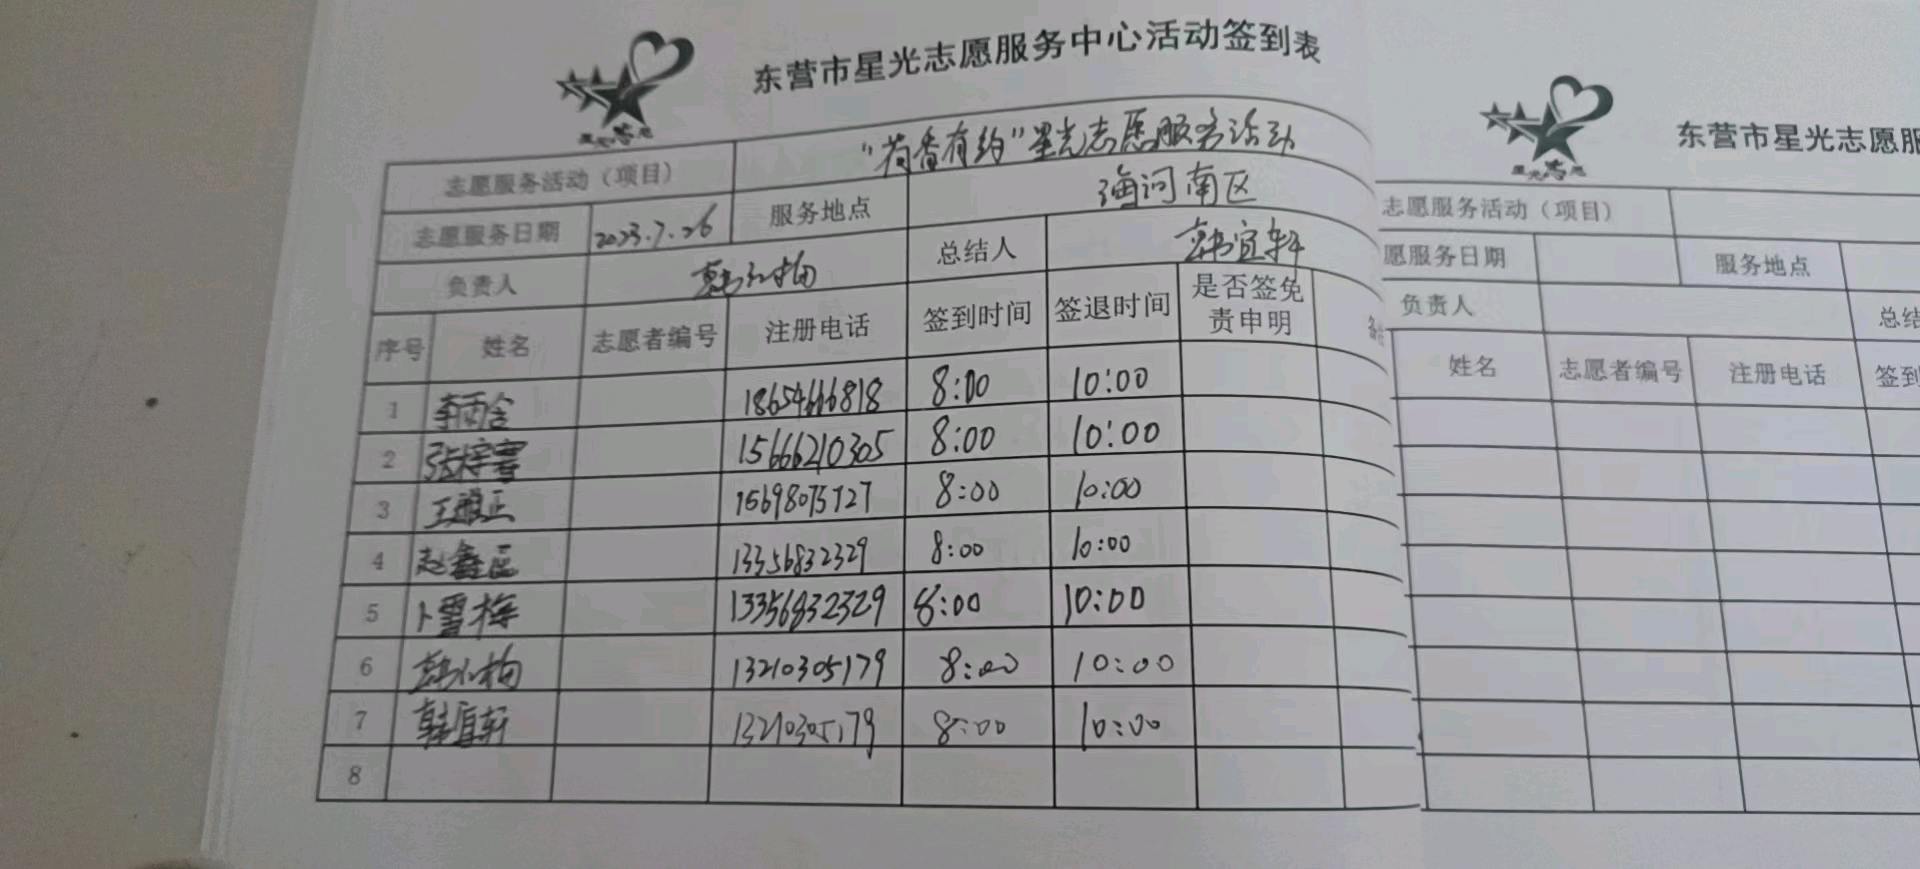 东营市星光志愿服务中心活动签到表
星光志愿
志愿服务活动（项目） “荷香有约”星光志愿服务活动
志愿服务日期 2023.7.26 服务地点 海河南区
负责人 韩红梅 总结人 韩宜轩
序号 姓名 志愿者编号 注册电话 签到时间 签退时间 是否签免责申明 备
1 李雨含 18654616818 8:00 10:00
2 15666210305 8:00 10:00
3 王雅正 15698075727 8:00 10:00
4 赵鑫 13356832329 8:00 10:00
5 卜雪梅 13356832329 8:00 10:00
6 韩红梅 13210305179 8:00 10:00
7 韩宜轩 13210305179 8:00 10:00
8
东营市星光志愿服
星光志愿
志愿服务活动（项目）
愿服务日期 服务地点
负责人 总结
姓名 志愿者编号 注册电话 签到